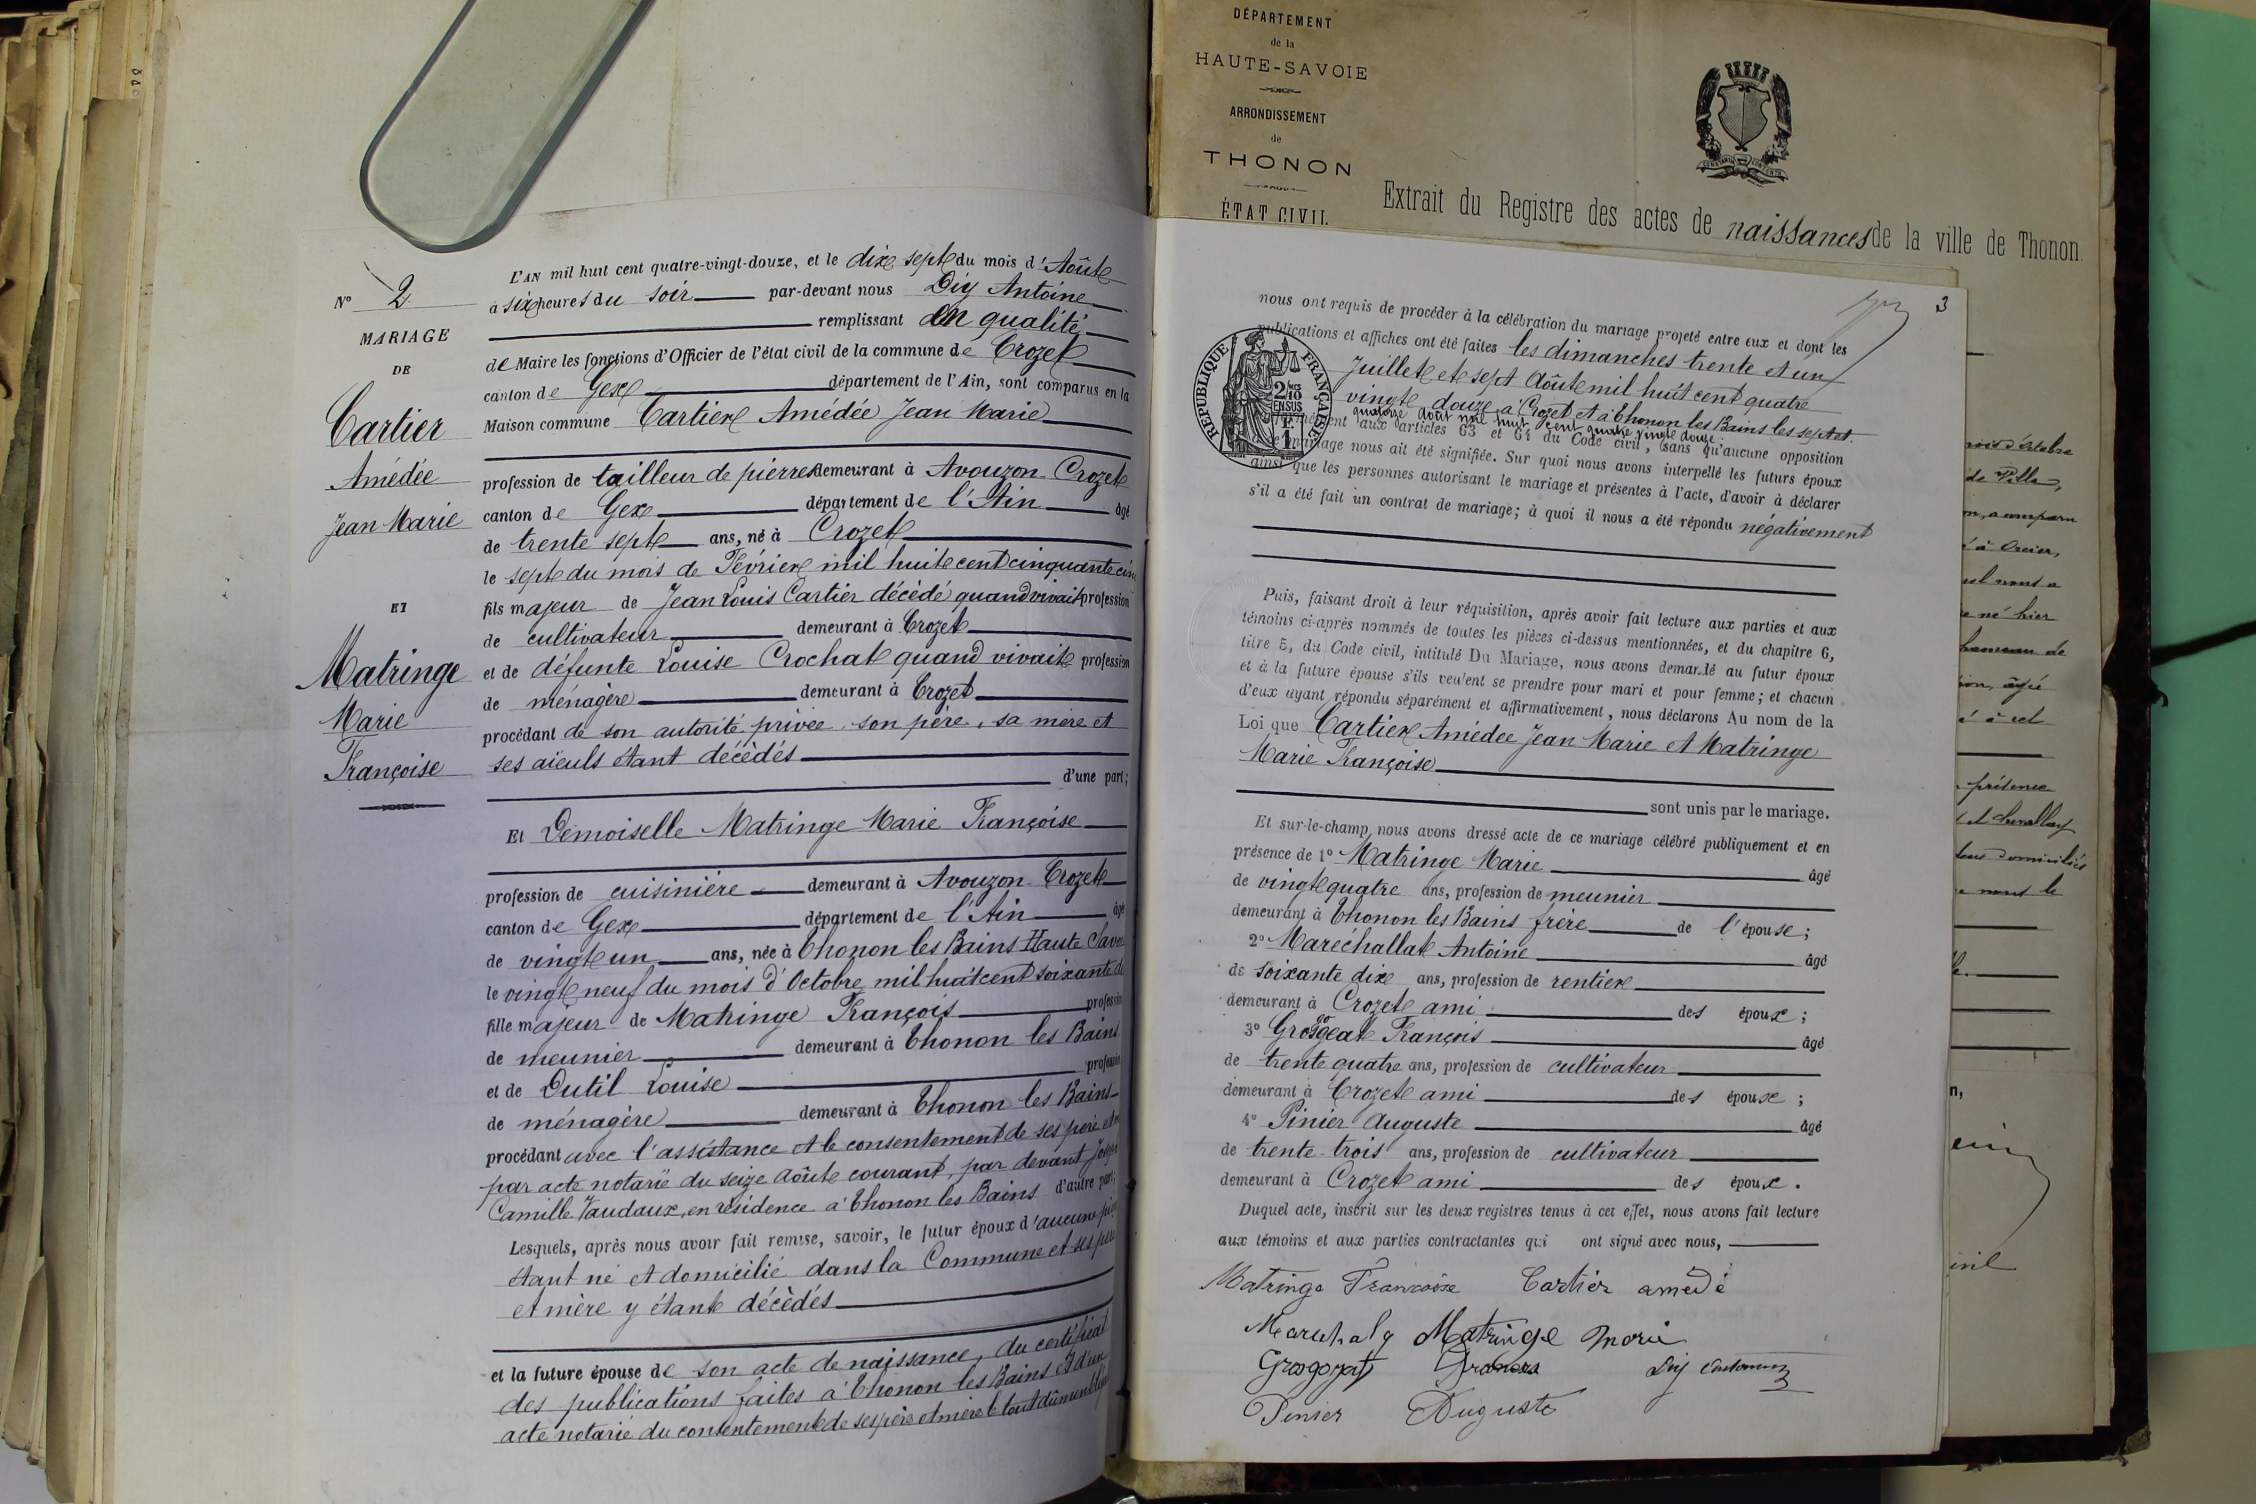 N° 2
MARIAGE
DE
Cartier
Amédée
Jean Marie
ET
Matringe
Marie
Françoise
L'AN mil huit cent quatre-vingt-douze, et le dix sept du mois d'Août
à six heures du soir par-devant nous Diy Antoine
remplissant en qualité
de Maire les fonctions d'Officier de l'état civil de la commune de Crozet
canton de Gex département de l'Ain, sont comparus en la
Maison commune Cartier Amédée Jean Marie
profession de tailleur de pierres demeurant à Avouzon-Crozet
canton de Gex département de l'Ain âgé
de trente sept ans, né à Crozet
le sept du mois de Février mil huit cent cinquante cinq
fils majeur de Jean Louis Cartier décédé quand vivait profession
de cultivateur demeurant à Crozet
et de défunte Louise Crochat quand vivait profession
de ménagère demeurant à Crozet
procédant de son autorité privée, son père, sa mère et
ses aïeuls étant décédés
d'une part;
Et Demoiselle Matringe Marie Françoise
profession de cuisinière demeurant à Avouzon-Crozet
canton de Gex département de l'Ain âgé
de vingt un ans, née à Thonon les Bains Haute Savoi
le vingt neuf du mois d'Octobre mil huit cent soixante di
fille majeur de Matringe François profession
de meunier demeurant à Thonon les Bains
et de Dutil Louise profession
de ménagère demeurant à Thonon les Bains
procédant avec l'assistance et le consentement de ses père et m
par acte notarié du seize Août courant, par devant Joseph
Camille Vaudaux, en résidence à Thonon les Bains d'autre part;
Lesquels, après nous avoir fait remise, savoir, le futur époux d'aucune pièce
étant né et domicilié dans la Commune et ses père
et mère y étant décédés
et la future épouse de son acte de naissance, du certificat
des publications faites à Thonon les Bains et d'un
acte notarié du consentement de ses père et mère le tout dûment
DÉPARTEMENT
de la
HAUTE-SAVOIE
ARRONDISSEMENT
de
THONON
ÉTAT CIVIL
Extrait du Registre des actes de naissances de la ville de Thonon
3
nous ont requis de procéder à la célébration du mariage projeté entre eux et dont les
publications et affiches ont été faites les dimanches trente et un
Juillet et sept Août mil huit cent quatre
vingt douze, à Crozet et à Thonon les Bains les sept et
quatorze Août mil huit cent quatre vingt douze
aux articles 63 et 64 du Code civil, sans qu'aucune opposition
mariage nous ait été signifiée. Sur quoi nous avons interpellé les futurs époux
ainsi que les personnes autorisant le mariage et présentes à l'acte, d'avoir à déclarer
s'il a été fait un contrat de mariage; à quoi il nous a été répondu négativement
RÉPUBLIQUE FRANÇAISE
2/10 EN SUS
1 F
Puis, faisant droit à leur réquisition, après avoir fait lecture aux parties et aux
témoins ci-après nommés de toutes les pièces ci-dessus mentionnées, et du chapitre 6,
titre 5, du Code civil, intitulé Du Mariage, nous avons demandé au futur époux
et à la future épouse s'ils veulent se prendre pour mari et pour femme; et chacun
d'eux ayant répondu séparément et affirmativement, nous déclarons Au nom de la
Loi que Cartier Amédée Jean Marie et Matringe
Marie Françoise
sont unis par le mariage.
Et sur-le-champ nous avons dressé acte de ce mariage célébré publiquement et en
présence de 1° Matringe Marie âgé
de vingt quatre ans, profession de meunier
demeurant à Thonon les Bains frère de l'épouse;
2° Maréchallat Antoine âgé
de soixante dix ans, profession de rentier
demeurant à Crozet ami des époux;
3° Grosgogeat François âgé
de trente quatre ans, profession de cultivateur
demeurant à Crozet ami des époux;
4° Pinier Auguste âgé
de trente-trois ans, profession de cultivateur
demeurant à Crozet ami des époux.
Duquel acte, inscrit sur les deux registres tenus à cet effet, nous avons fait lecture
aux témoins et aux parties contractantes qui ont signé avec nous,
Matringe Francoise Cartier amédé
Matringe Marie
Pinier Auguste
mois d'Octobre
de Ville
à Orcier,
né hier
hameau de
âgé
présence
domiciliés